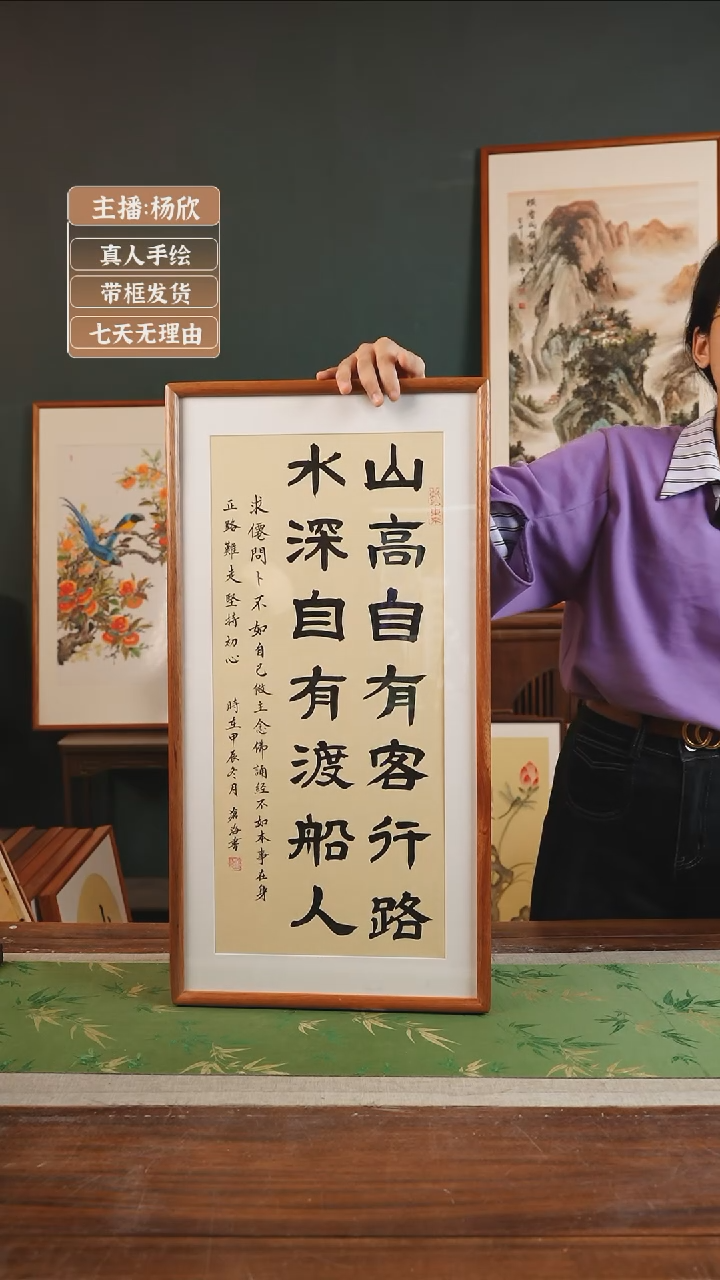 主播:杨欣
真人手绘
带框发货
七天无理由
山高自有客行路
水深自有渡船人
求僊問卜不如自己做主念佛誦經不如本事在身
正路難走堅持初心 時在甲辰冬月